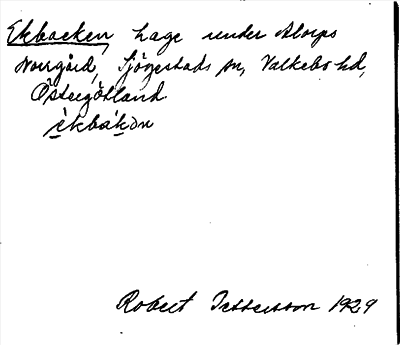 Ekbacken, hage under Alorps
Norrgård, Sjögestads sn, Valkebo hd,
Östergötland
èkbákən
Robert Pettersson 1929